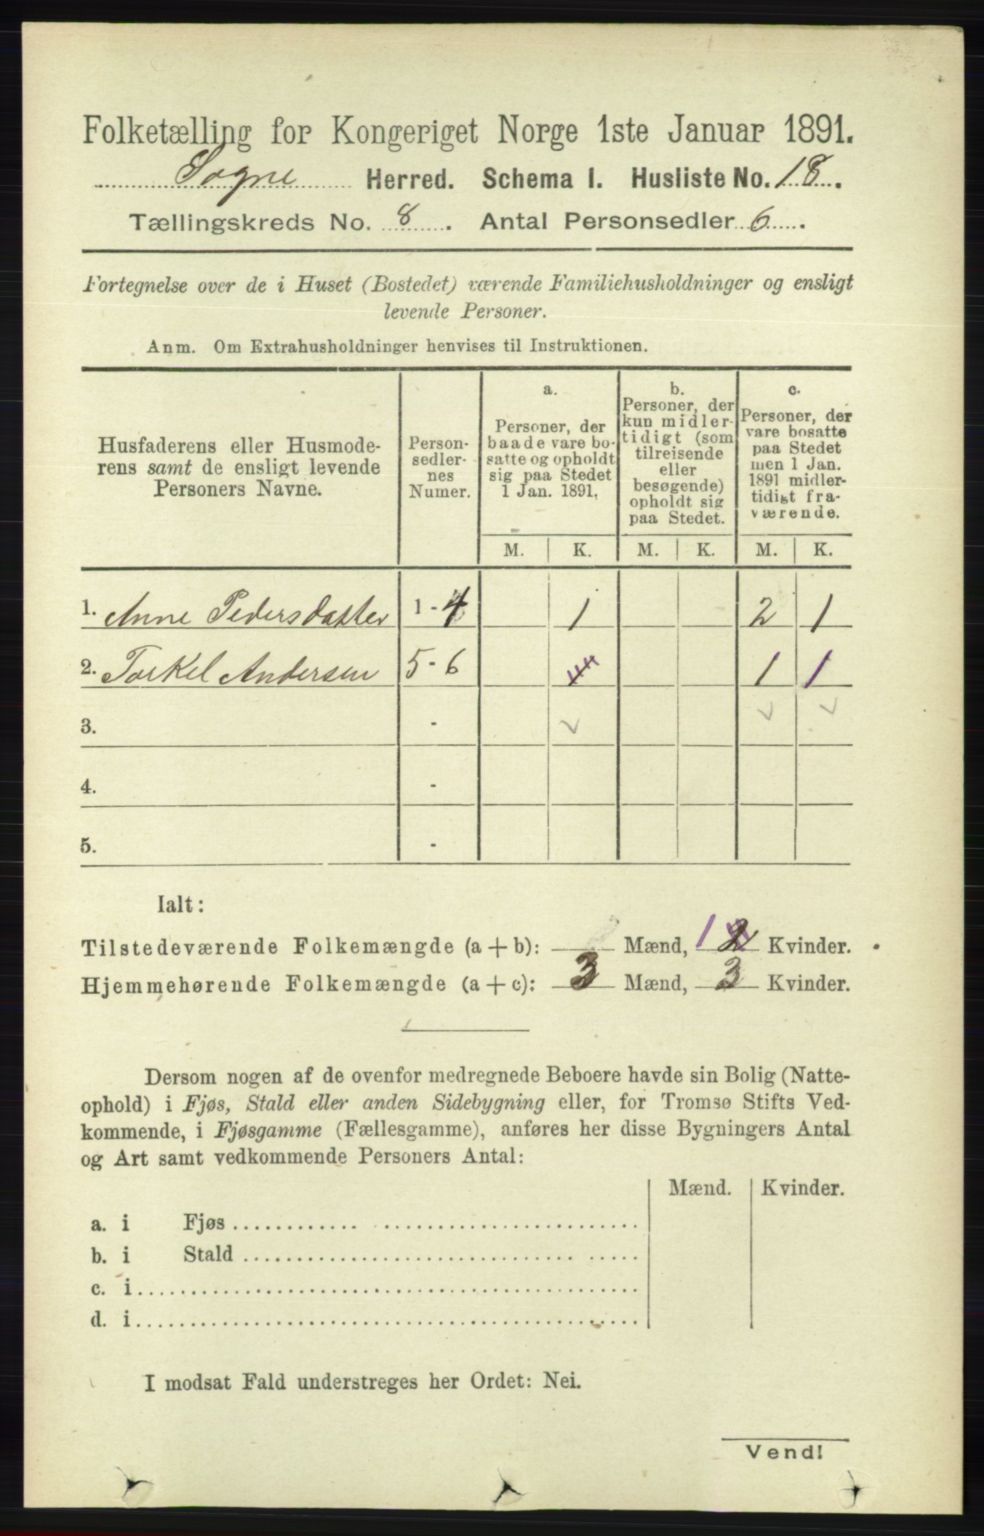 Folketælling for Kongeriget Norge 1ste Januar 1891.
Søgne Herred. Schema I. Husliste No. 18.
Tællingskreds No. 8. Antal Personsedler 6.
Fortegnelse over de i Huset (Bostedet) værende Familiehusholdninger og ensligt
levende Personer.
Anm. Om Extrahusholdninger henvises til Instruktionen.
Husfaderens eller Husmode-
rens samt de ensligt levende
Personers Navne.
Person-
sedler-
nes
Numer.
a.
Personer, der
baade vare bo-
satte og opholdt
sig paa Stedet
1 Jan. 1891.
b.
Personer, der
kun midler-
tidigt (som
tilreisende
eller
besøgende)
opholdt sig
paa Stedet.
c.
Personer, der
vare bosatte
paa Stedet
men 1 Jan.
1891 midler-
tidigt fra-
værende.
M. K. M. K. M. K.
1. Anne Pedersdatter 1 - 4 1 2 1
2. Torkel Andersen 5 - 6 1 1
3. -
4. -
5. -
Ialt:
Tilstedeværende Folkemængde (a + b): Mænd, 1 2 Kvinder.
Hjemmehørende Folkemængde (a + c): 3 Mænd, 3 Kvinder.
Dersom nogen af de ovenfor medregnede Beboere havde sin Bolig (Natte-
ophold) i Fjøs, Stald eller anden Sidebygning eller, for Tromsø Stifts Ved-
kommende, i Fjøsgamme (Fællesgamme), anføres her disse Bygningers Antal
og Art samt vedkommende Personers Antal:
Mænd. Kvinder.
a. i Fjøs
b. i Stald
c. i
d. i
I modsat Fald understreges her Ordet: Nei.
Vend!